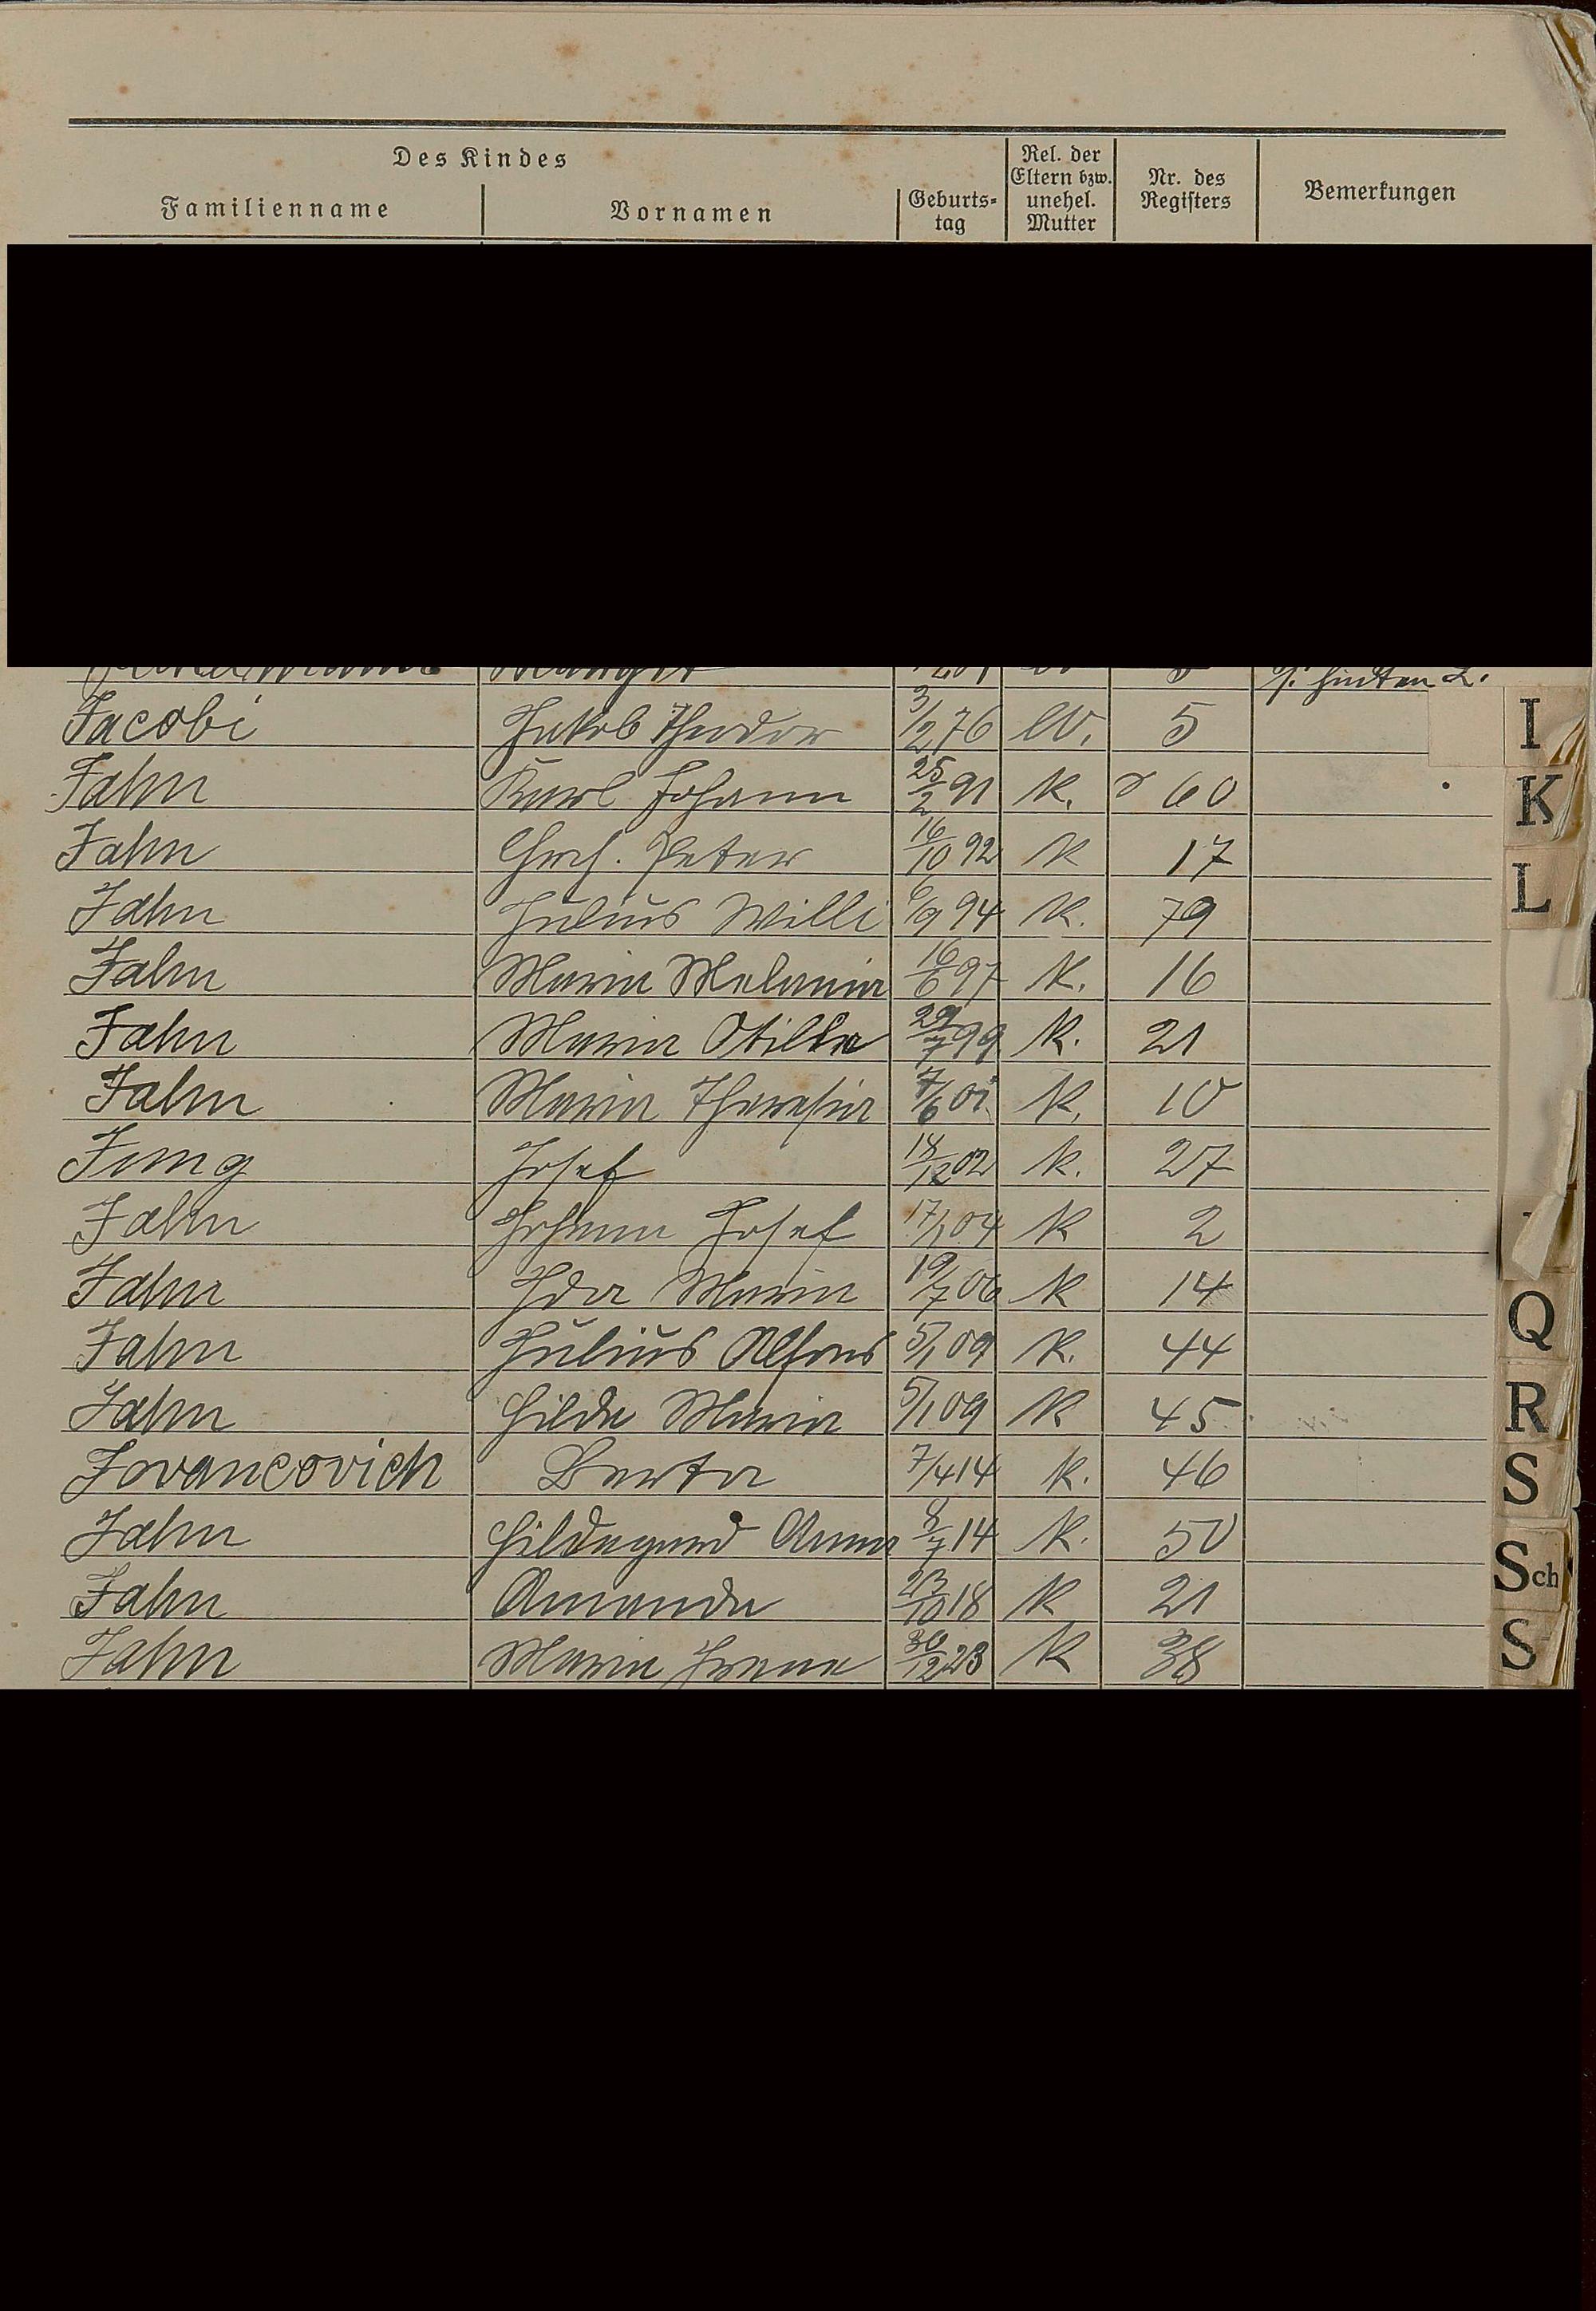 Des Kindes
Familienname Vornamen Geburts-tag Rel. der Eltern bzw. unehel. Mutter Nr. des Registers Bemerkungen
hinten 2.
Jacobi Jakob Theodor 3/12 76 ev. 5
Jahn Karl Johann 25/2 91 k. 60
Jahn Peter 16/10 92 k 17
Jahn Julius Willi 6/9 94 k. 79
Jahn Maria Melania 16/6 97 k. 16
Jahn Maria Otilia 29/7 99 k. 21
Jahn Maria Theresia 7/6 01 k. 10
Jung Josef 18/12 02 k. 27
Jahn Johann Josef 17/1 04 k 2
Jahn Ida Maria 19/7 06 k 14
Jahn Julius Alfons 5/1 09 k. 44
Jahn Hilda Maria 5/1 09 k 45
Jovancovich Berta 7/4 14 k. 46
Jahn Hildegard Anna 8/7 14 k. 50
Jahn Amanda 23/10 18 k 21
Jahn Maria Irene 30/12 23 k 38
I
K
L
Q
R
S
Sch
S